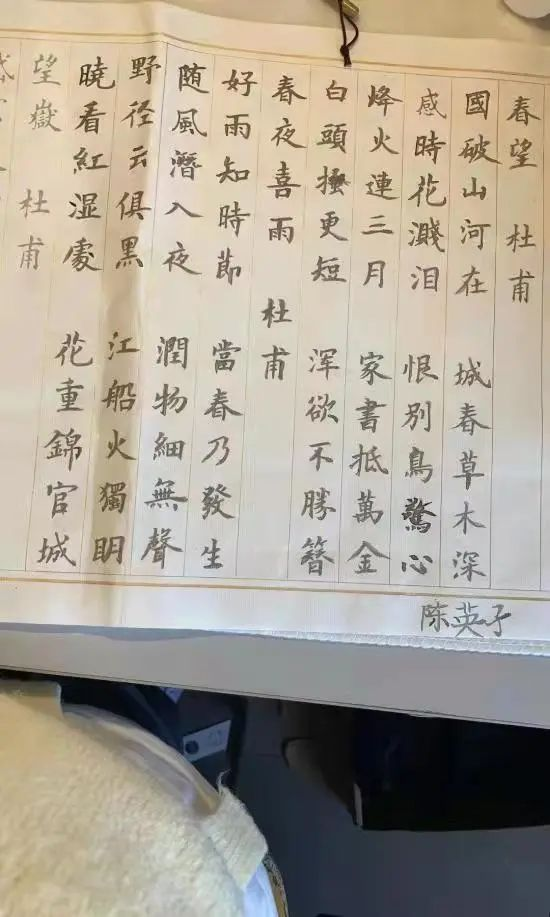 春望 杜甫
國破山河在 城春草木深
感時花濺泪 恨别鳥驚心
烽火連三月 家書抵萬金
白頭搔更短 浑欲不勝簪
春夜喜雨 杜甫
好雨知時節 當春乃發生
随風潛入夜 潤物細無聲
野径云俱黑 江船火獨明
曉看紅湿處 花重錦官城
望嶽 杜甫
陈英子